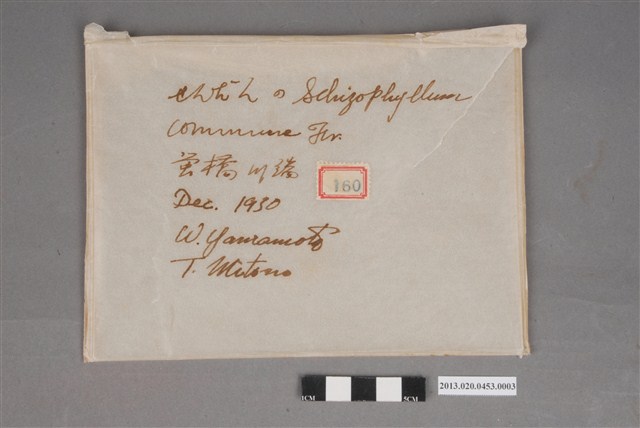 Schizophyllum
Commune Fr.
螢橋川端
160
Dec. 1930
W. Yamamoto
T. Mitono
1CM
5CM
2013.020.0453.0003